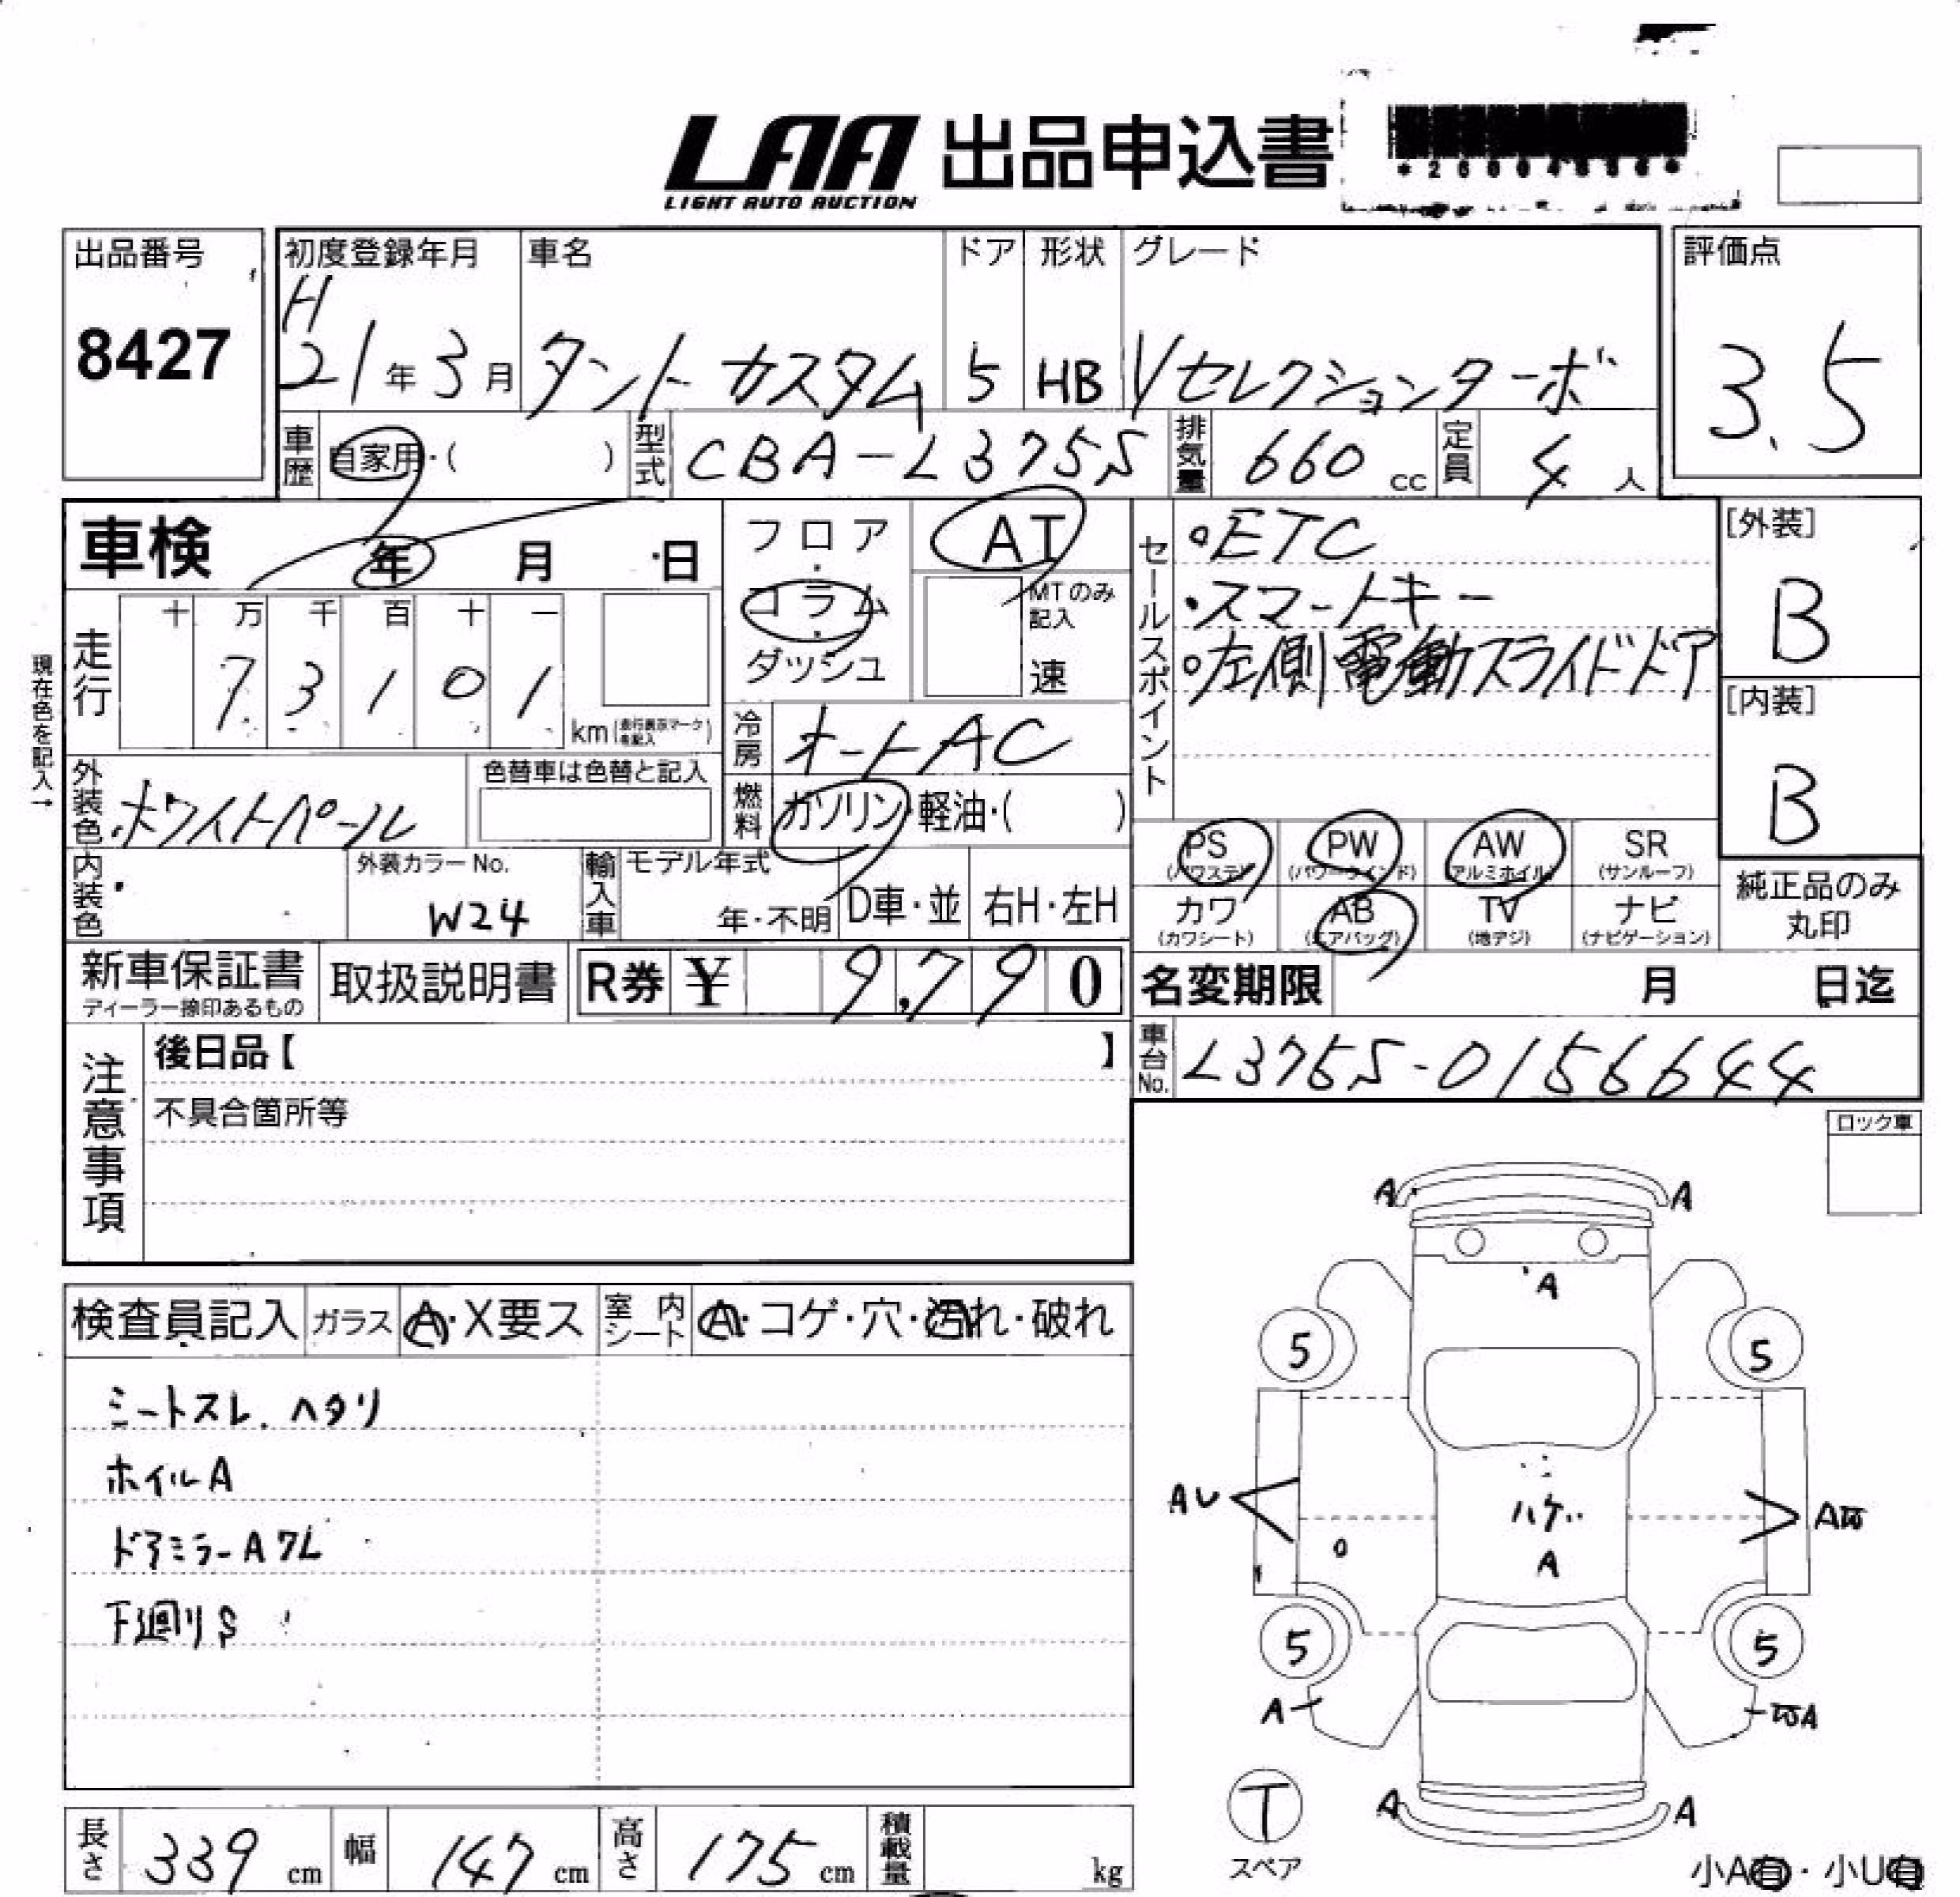 LAA 出品申込書
LIGHT AUTO AUCTION
出品番号
8427
初度登録年月
H
21年3月
車名
タント カスタム
ドア
5
形状
HB
グレード
Vセレクションターボ
評価点
3.5
車歴 自家用・( )
型式 CBA-L375S
排気量 660 cc
定員 4人
車検 年 月 日
フロア・コラム・ダッシュ
AT
MTのみ記入
速
セールスポイント
・ETC
・スマートキー
・左側電動スライドドア
[外装]
B
[内装]
B
現在色を記入→
走行
十 万 千 百 十 一
7 3 1 0 1
km
冷房 オートAC
燃料 ガソリン・軽油・( )
外装色 ホワイトパール
色替車は色替と記入
内装色
外装カラーNo.
W24
輸入車
モデル年式
年・不明
D車・並
右H・左H
PS
(パワステ)
PW
(パワーウインド)
AW
(アルミホイル)
SR
(サンルーフ)
カワ
(カワシート)
AB
(エアバッグ)
TV
(地デジ)
ナビ
(ナビゲーション)
純正品のみ
丸印
新車保証書
ディーラー捺印あるもの
取扱説明書
R券 ¥ 9,790
名変期限 月 日迄
車台No. L375S-0156644
注意事項
後日品【 】
不具合箇所等
ロック車
検査員記入
ガラス
A・X要ス
室内シート
A・コゲ・穴・汚れ・破れ
シートスレ、ヘタリ
ホイルA
ドアミラーAワレ
下廻りS
A A
A
5 5
AU
ハゲ
A
5 5
A
A A
T
スペア
小A有・小U有
長さ 339 cm
幅 147 cm
高さ 175 cm
積載量 kg